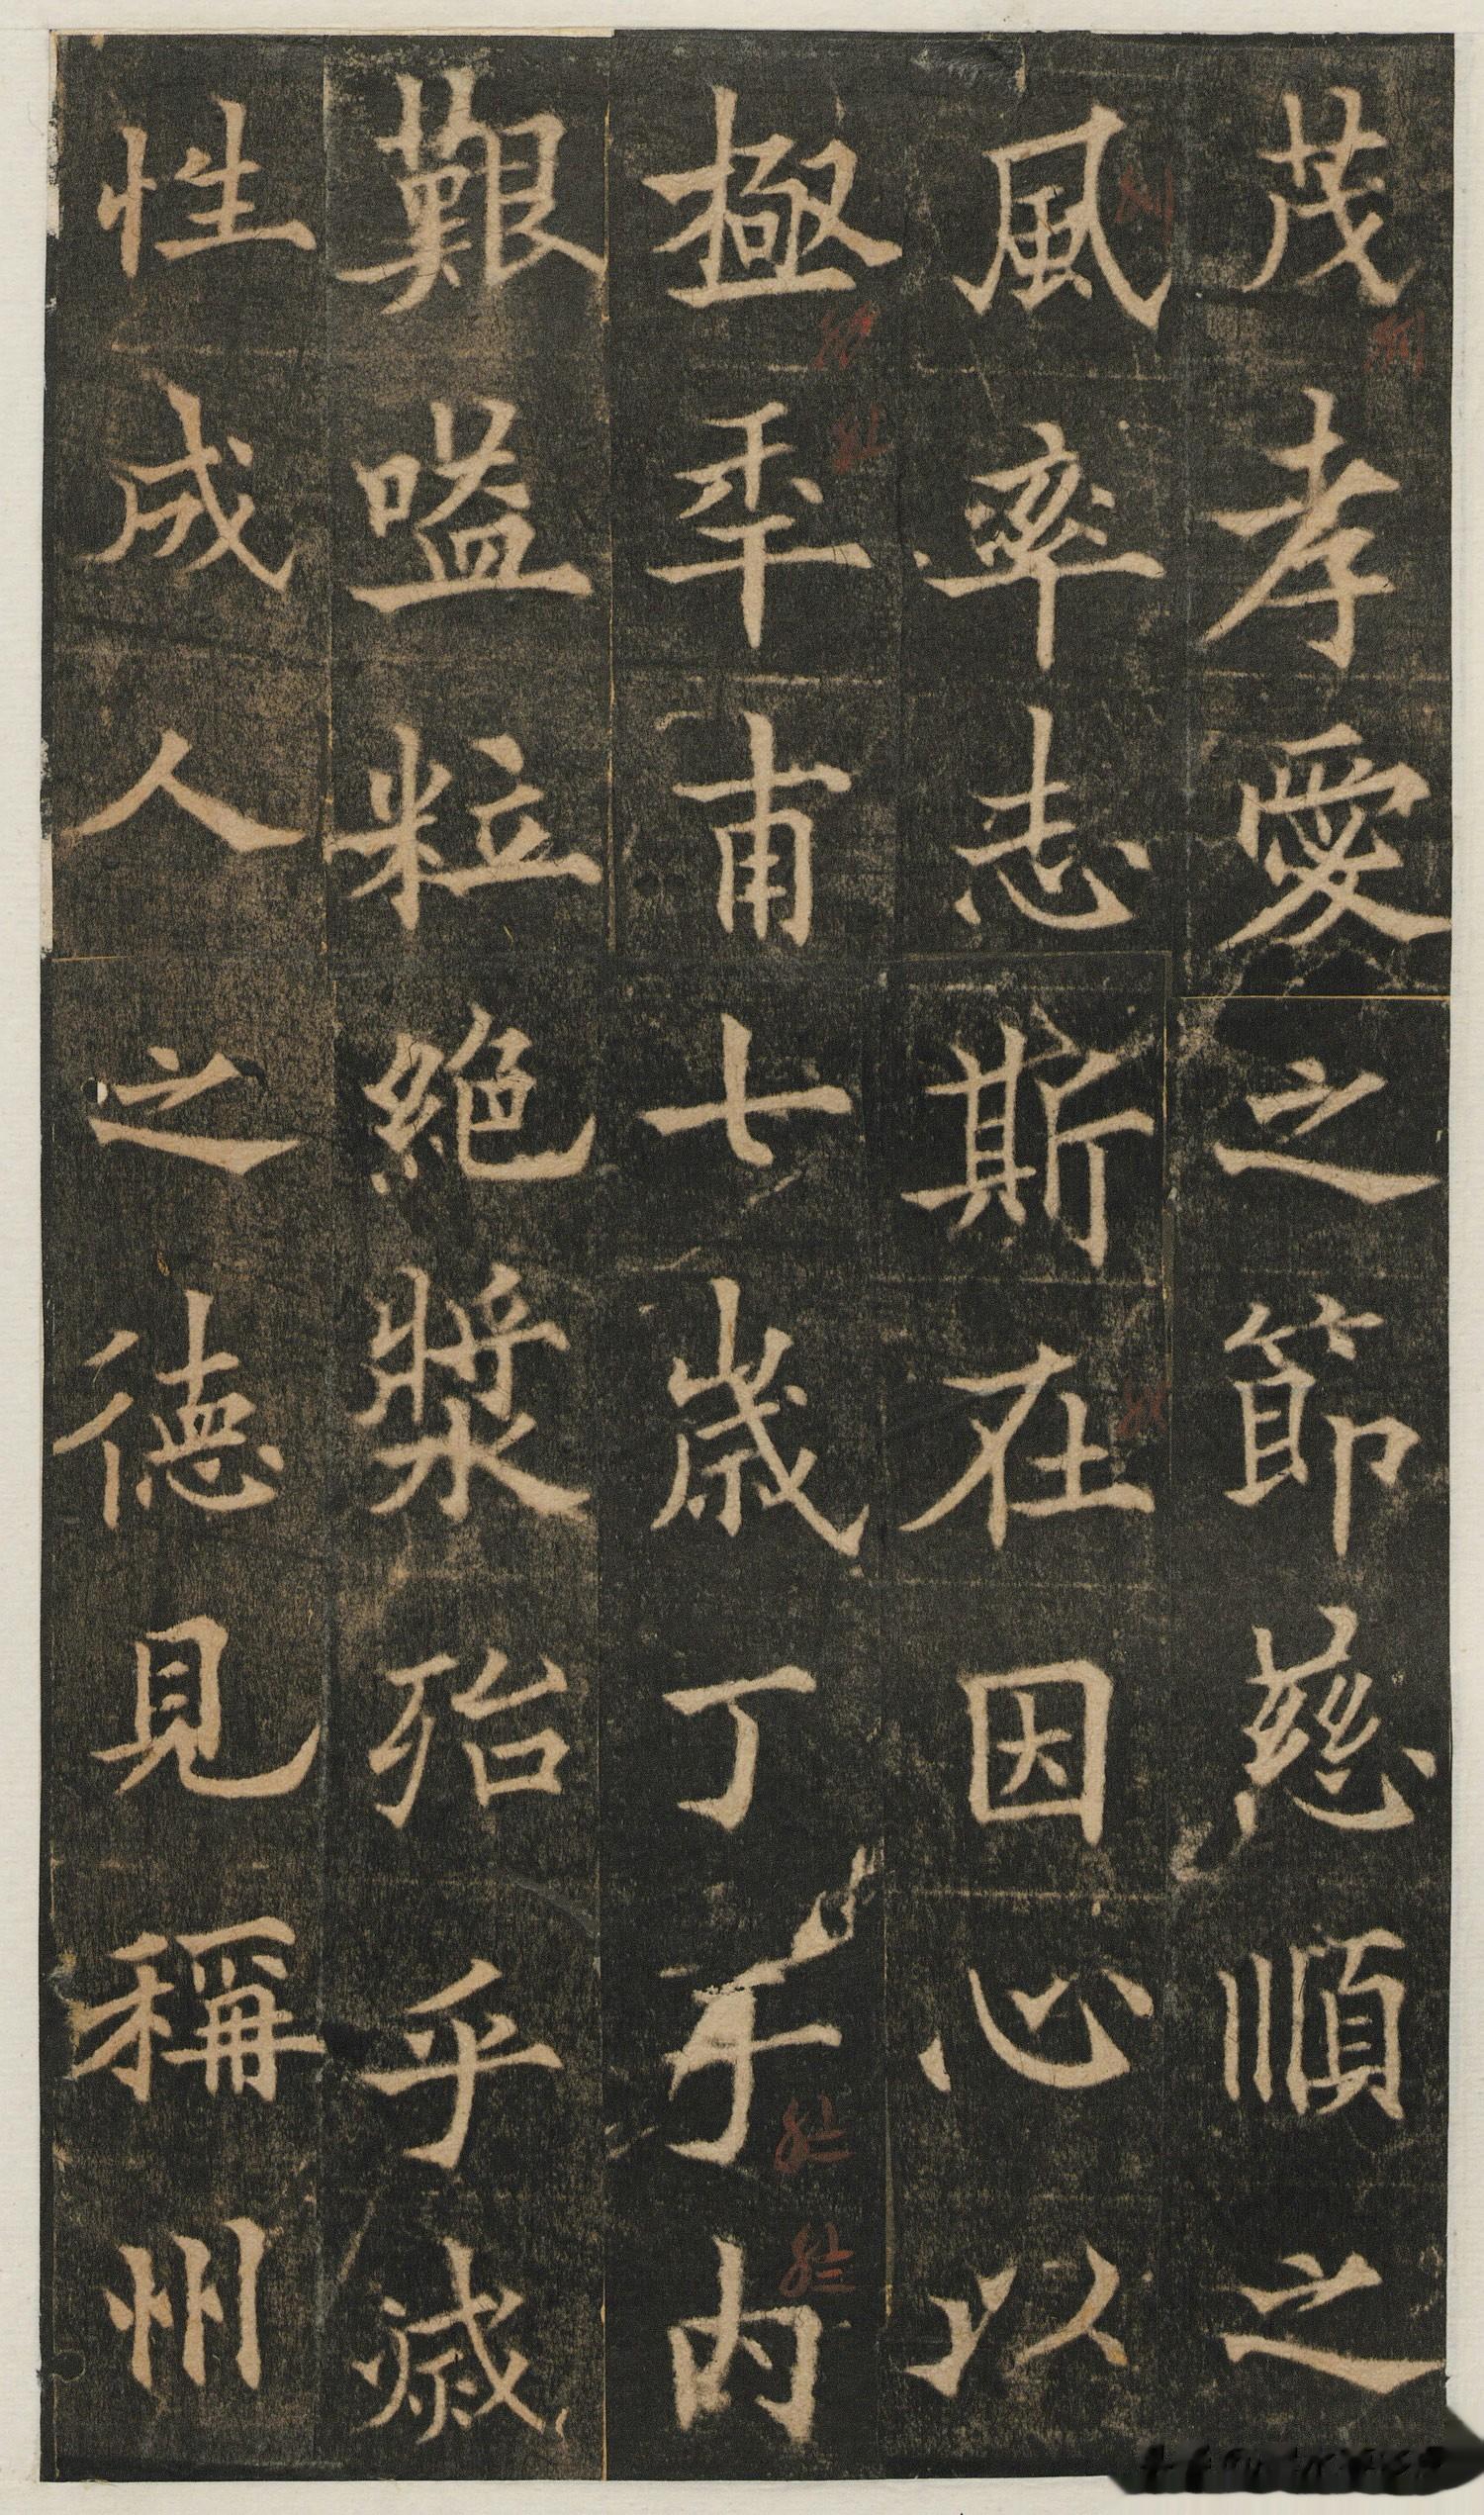 茂孝愛之節慈順之
風率志斯在因心以
極年甫七歲丁于内
艱嗌粒絕漿殆乎滅
性成人之德見稱州